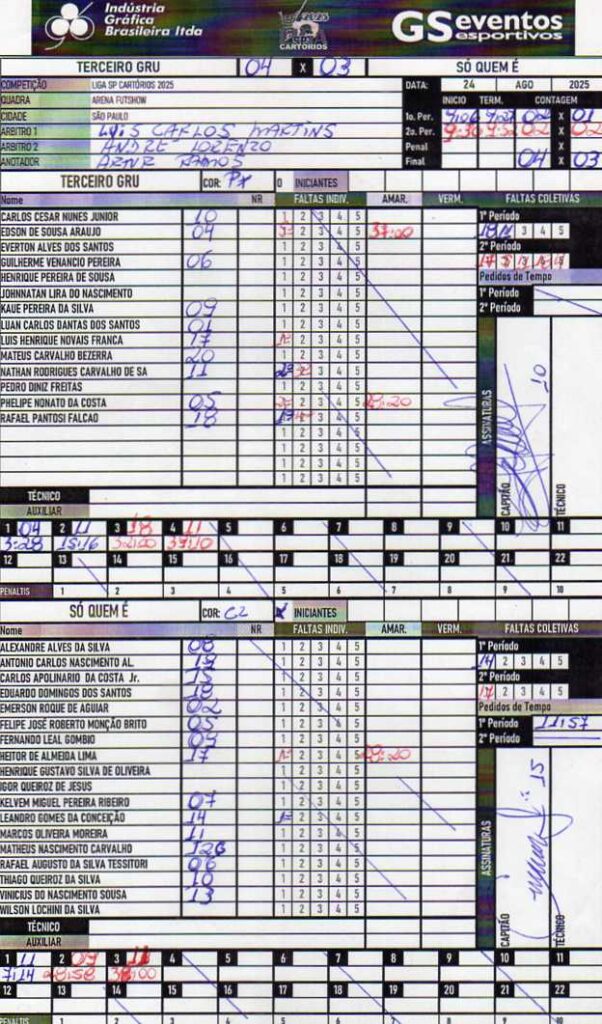 Indústria
Gráfica
Brasileira ltda
2025
CARTÓRIOS
GSeventos
esportivos
TERCEIRO GRU 04 X 03 SÓ QUEM É
COMPETIÇÃO LIGA SP CARTÓRIOS 2025 DATA: 24 AGO 2025
QUADRA ARENA FUTSHOW INICIO TERM. CONTAGEM
CIDADE SÃO PAULO 1o. Per. 02 X 01
ARBITRO 1 LUIS CARLOS MARTINS 2o. Per. 9:36 9:52 02 X 02
ARBITRO 2 ANDRÉ LORENZO Penal X
ANOTADOR RAMOS Final 04 X 03
TERCEIRO GRU COR: PX 0 INICIANTES
Nome NR FALTAS INDIV. AMAR. VERM. FALTAS COLETIVAS
CARLOS CESAR NUNES JUNIOR 10 1 2 3 4 5 1º Período
EDSON DE SOUSA ARAUJO 04 2 3 4 5 37:00 3 4 5
EVERTON ALVES DOS SANTOS 1 2 3 4 5 2º Período
GUILHERME VENANCIO PEREIRA 06 1 2 3 4 5
HENRIQUE PEREIRA DE SOUSA 1 2 3 4 5 Pedidos de Tempo
JOHNNATAN LIRA DO NASCIMENTO 1 2 3 4 5 1º Período
KAUE PEREIRA DA SILVA 09 1 2 3 4 5 2º Período
LUAN CARLOS DANTAS DOS SANTOS 01 1 2 3 4 5
LUIS HENRIQUE NOVAIS FRANCA 17 2 3 4 5
MATEUS CARVALHO BEZERRA 20 1 2 3 4 5
NATHAN RODRIGUES CARVALHO DE SA 11 3 4 5
PEDRO DINIZ FREITAS 1 2 3 4 5
PHELIPE NONATO DA COSTA 05 2 3 4 5
RAFAEL PANTOSI FALCAO 18 3 4 5
1 2 3 4 5
1 2 3 4 5
1 2 3 4 5
1 2 3 4 5
ASSINATURAS
CAPITÃO 10
TÉCNICO
TÉCNICO
AUXILIAR
1 04 2 11 3 18 4 11 5 6 7 8 9 10 11
3:28 15:16 32:00 37:10
12 13 14 15 16 17 18 19 20 21 22
PENALTIS 1 2 3 4 5 6 7 8 9 10
SÓ QUEM É COR: CZ X INICIANTES
Nome NR FALTAS INDIV. AMAR. VERM. FALTAS COLETIVAS
ALEXANDRE ALVES DA SILVA 08 1 2 3 4 5 1º Período
ANTONIO CARLOS NASCIMENTO AL. 1 2 3 4 5 14 2 3 4 5
CARLOS APOLINARIO DA COSTA Jr. 15 1 2 3 4 5 2º Período
EDUARDO DOMINGOS DOS SANTOS 1 2 3 4 5 17 2 3 4 5
EMERSON ROQUE DE AGUIAR 02 1 2 3 4 5 Pedidos de Tempo
FELIPE JOSÉ ROBERTO MONÇÃO BRITO 05 1 2 3 4 5 1º Período 11:57
FERNANDO LEAL GOMBIO 1 2 3 4 5 2º Período
HEITOR DE ALMEIDA LIMA 17 2 3 4 5
HENRIQUE GUSTAVO SILVA DE OLIVEIRA 1 2 3 4 5
IGOR QUEIROZ DE JESUS 1 2 3 4 5
KELVEM MIGUEL PEREIRA RIBEIRO 07 1 2 3 4 5
LEANDRO GOMES DA CONCEIÇÃO 14 2 3 4 5
MARCOS OLIVEIRA MOREIRA 11 1 2 3 4 5
MATHEUS NASCIMENTO CARVALHO 1 2 3 4 5
RAFAEL AUGUSTO DA SILVA TESSITORI 1 2 3 4 5
THIAGO QUEIROZ DA SILVA 1 2 3 4 5
VINICIUS DO NASCIMENTO SOUSA 13 1 2 3 4 5
WILSON LOCHINI DA SILVA 1 2 3 4 5
ASSINATURAS
CAPITÃO 15
TÉCNICO
TÉCNICO
AUXILIAR
1 11 2 3 11 4 5 6 7 8 9 10 11
7:14 28:58 38:00
12 13 14 15 16 17 18 19 20 21 22
PENALTIS 1 2 3 4 5 6 7 8 9 10